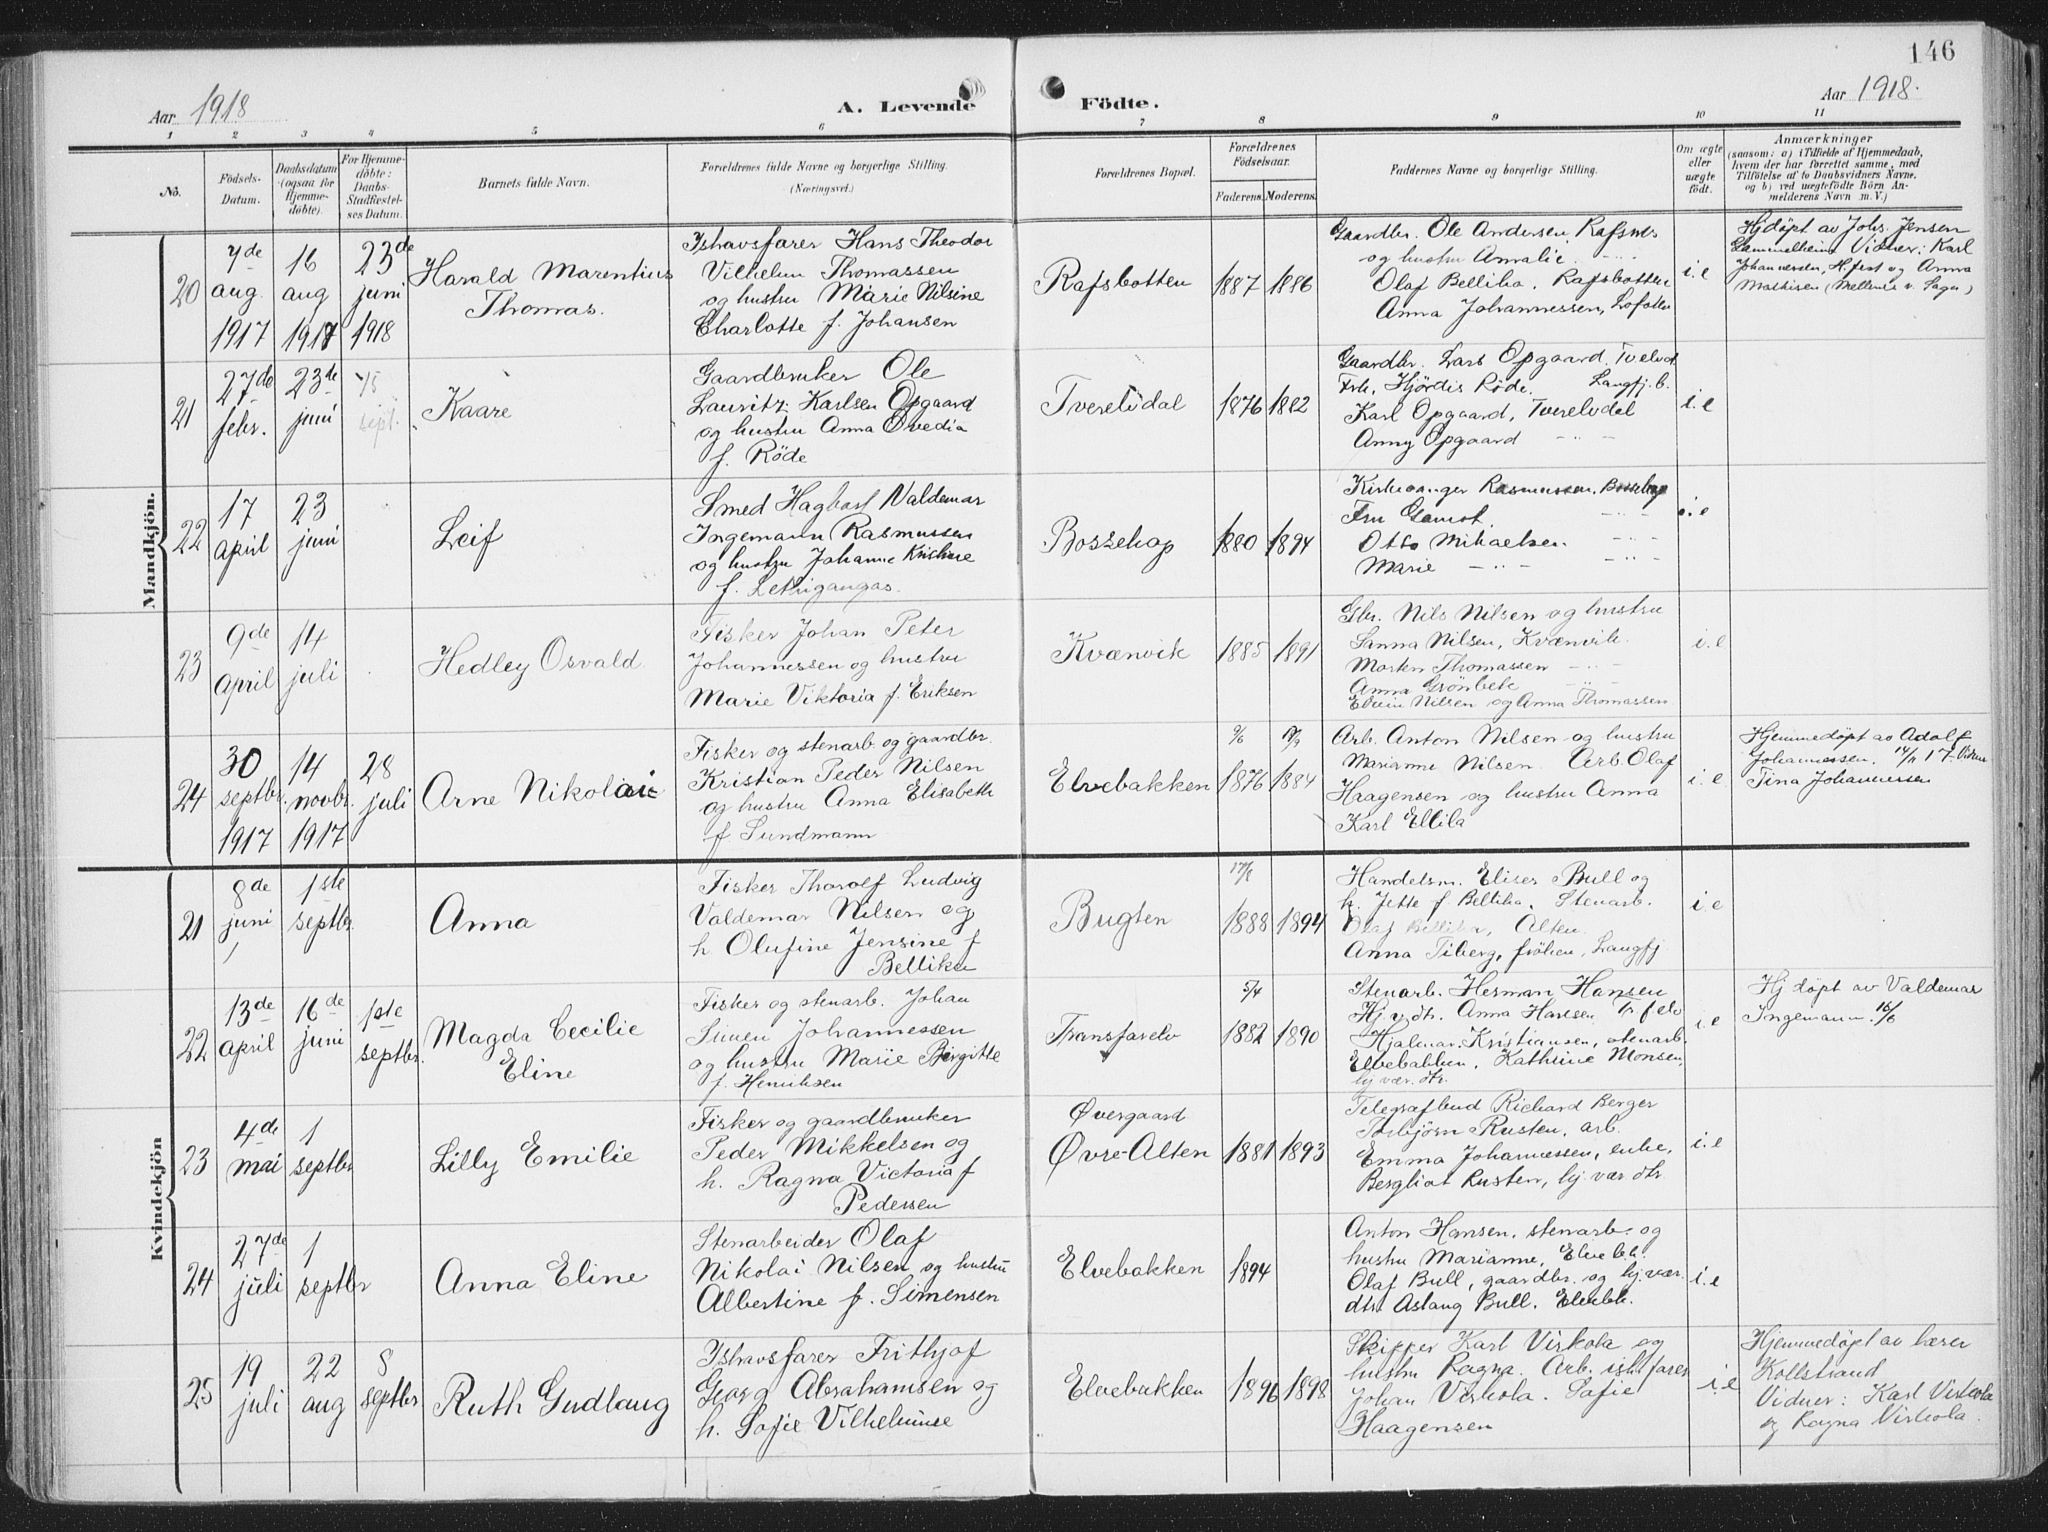 146
Aar 1918
A. Levende Födte.
Aar 1918.
1 2 3 4 5 6 7 8 9 10 11
No.
Födsels-
Datum.
Daabsdatum
(ogsaa for
Hjemme-
döbte).
For Hjemme-
döbte:
Daabs-
Stadfæstel-
ses Datum.
Barnets fulde Navn.
Forældrenes fulde Navne og borgerlige Stilling.
(Næringsvei.)
Forældrenes Bopæl.
Forældrenes
Födselsaar.
Faderens.
Moderens.
Faddernes Navne og borgerlige Stilling.
Om ægte
eller
uægte
födt.
Anmærkninger
(saasom: a) i Tilfælde af Hjemmedaab,
hvem der har forrettet samme, med
Tilföielse af to Daabsvidners Navne,
og b) ved uægte födte Börn An-
melderens Navn m. V.)
Mandkjön.
20
7de
aug.
1917
16
aug
1917
23de
juni
1918
Harald Marentius
Thomas.
Ishavsfarer Hans Theodor
Vilhelm Thomassen
og hustru Marie Nilsine
Charlotte f. Johansen
Rafsbotten
1887
1886
Gaardbr. Ole Andersen, Rafsnes
og hustru Amalie. - " -
Olaf Bellika. Rafsbotten
Anna Johannessen, Lofoten
i. e
Hjdöpt av Johs. Jensen
Gammelheim Vidner: Karl
Johannesen, H.fest og Anna
21
27de
febr.
23de
juni
15
sept.
Kaare
Gaardbruker Ole
Lauritz Karlsen Opgaard
og hustru Anna Ovedia
f. Röde
Tverelvdal
1876
1882
Gaardbr. Lars Opgaard, Tvelvd
Frk. Hjördis Röde. Langfj. b.
Karl Opgaard, Tverelvdal
Anny Opgaard - " -
i. e
22
17
april
23
juni
Leif
Smed Hagbart Valdemar
Ingemann Rasmussen
og hustru Johanne Kristine
f.
Bossekop
1880
1894
Kirkesanger Rasmussen, Bossekop
Fru - " -
Otto Mihaelsen - " -
Marie - " - - " -
i. e
23
9de
april
14
juli
Hedley Osvald
Fisker Johan Peter
Johannessen og hustru
Marie Viktoria f. Eriksen
Kvænvik
1885
1891
Gbr. Nils Nilsen og hustru
Sanna Nilsen, Kvænvik.
Martin Thomassen - " -
Anna Grönbek - " -
Edvin Nilsen og Anna Thomassen
i. e
24
30
septbr.
1917
14
novbr.
1917
28
juli
Arne Nikolai
Fisker og stenarb. og gaardbr.
Kristian Peder Nilsen
og hustru Anna Elisabeth
f. Sundmann
Elvebakken
1876
1884
Arb. Anton Nilsen og hustru
Marianne Nilsen. Arb. Olaf
Haagensen og hustru Anna
Karl Ellila
i. e
Hjemmedöpt av Adolf
Johannessen, 14/11 17. Vidner
Tina Johannessen
Kvindekjön
21
8de
juni
1ste
septbr.
Anna
Fisker Thorolf Ludvig
Valdemar Nilsen og
h Olufine Jensine f
Bellika
Bugten
1888
1894
Handelsm. Eliser Bull og
h. Jette f. Bellika. Stenarb.
Olaf Bellika, Alten
Anna Tiberg, fröken, Langfj.
i. e
22
13de
april
16de
juni
1ste
septbr.
Magda Cecilie
Eline
Fisker og stenarb. Johan
Simen Johannessen
og hustru Marie Birgitte
f. Henriksen
Transfarelv
5/4
1882
1890
Stenarb. Herman Hansen
Hj. v. dtr. Anna Hansen Tr.f.elv
Hjalmar Kristiansen, stenarb.
Elvebakken, Kathrine Monsen,
hj vær. dtr.
i. e
Hj döpt av Valdemar
Ingemann. 16/6
23
4de
mai
1
septbr
Lilly Emilie
Fisker og gaardbruker
Peder Mikkelsen og
h. Ragna Victoria f
Pedersen
Øvergaard
Øvre-Alten
1881
1893
Telegrafbud Richard Berger
Torbjörn Rusten, arb.
Emma Johannessen, enke,
Bergliot Rusten, hj vær dtr.
i. e
24
27de
juli
1
septbr
Anna Eline
Stenarbeider Olaf
Nikolai Nilsen og hustru
Albertine f. Simensen
Elvebakken
1894
Anton Hansen, stenarb. og
hustru Marianne, Elvebk.
Olaf Bull, gaardbr. og hj. vær.
dtr. Aslaug Bull. Elvebk.
i. e
25
19
juli
22
aug
8
septbr
Ruth Gudlaug
Ishavsfarer Frithjof
Georg Abrahamsen og
h. Sofie Vilhelmine
Elvebakken
1896
1898
Skipper Karl Virkola og
hustru Ragna. Arb. ishfarer
Johan Virkola. Sofie
Haagensen
i. e
Hjemmedöpt av lærer
Kollstrand
Vidner: Karl Virkola
og Ragna Virkola.